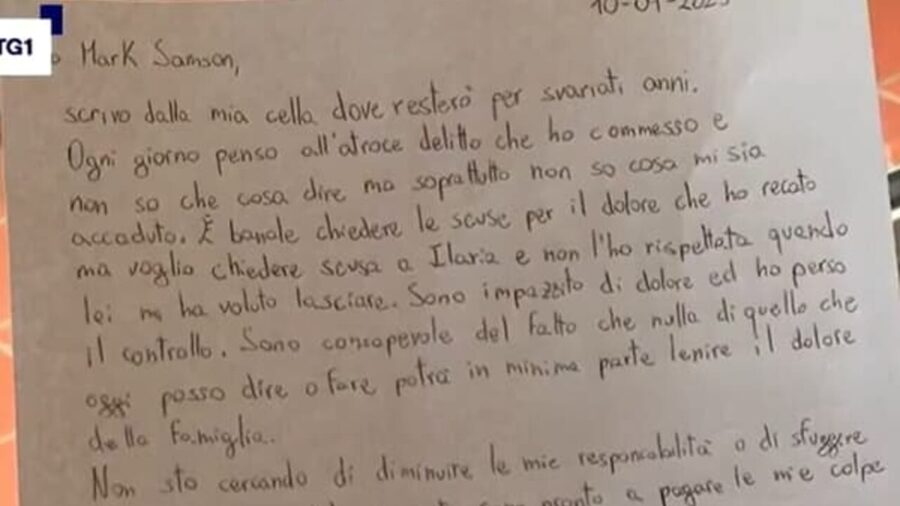 TG1
10-01-202
Mark Samson,
scrivo dalla mia cella dove resterò per svariati anni.
Ogni giorno penso all'atroce delitto che ho commesso e
non so che cosa dire ma soprattutto non so cosa mi sia
accaduto. È banale chiedere le scuse per il dolore che ho recato
ma voglio chiedere scusa a Ilaria e non l'ho rispettata quando
lei mi ha voluto lasciare. Sono impazzito di dolore ed ho perso
il controllo. Sono consapevole del fatto che nulla di quello che
oggi posso dire o fare potrà in minima parte lenire il dolore
della famiglia.
Non sto cercando di diminuire le mie responsabilità o di sfuggire
pronto a pagare le mie colpe